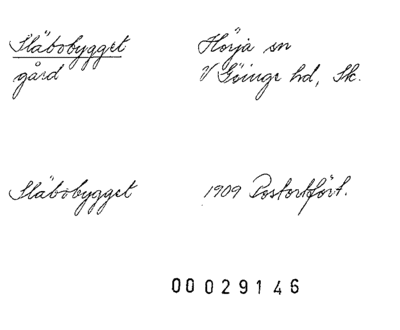 Släbobygget Hörja sn
gård V Göinge hd, Sk.
Släbobygget 1909 Postortfört.
00029146